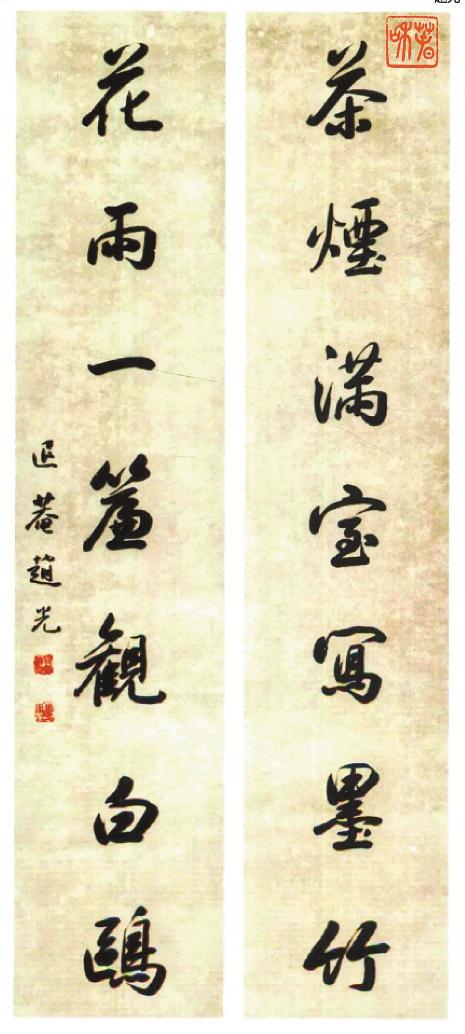 茶煙滿室寫墨竹
花雨一簾觀白鷗
退菴趙光